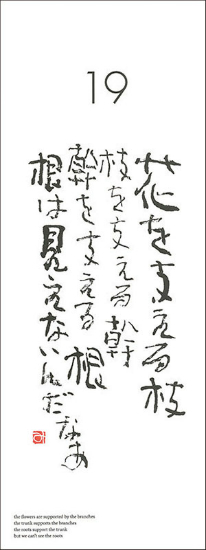 19
花を支える枝
枝を支える幹
幹を支える根
根は見えないんだなあ
the flowers are supported by the branches
the trunk supports the branches
the roots support the trunk
but we can't see the roots